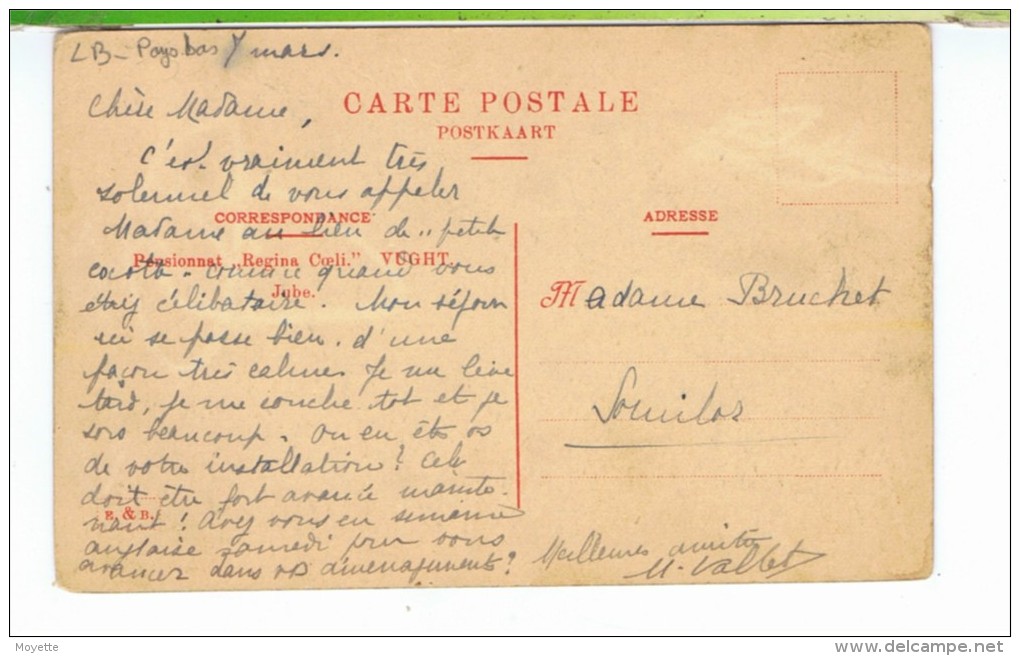 LB - Pays bas 7 mars.
CARTE POSTALE
POSTKAART
Chère Madame,
C'est vraiment très
solennel de vous appeler
CORRESPONDANCE
Madame au lieu de "petite
Pensionnat „Regina Cœli.” VUGHT.
cocotte" comme quand vous
Jube.
étiez célibataire. Mon séjour
ici se passe bien. d'une
façon très calme. Je me lève
tard, je me couche tot et je
sors beaucoup. Ou en êtes vs
de votre installation? Cela
doit être fort avancé mainte-
E. & B.
nant! Avez vous en semaine
anglaise samedi pour vous
avancer dans vos aménagements?
ADRESSE
Madame Bruchet
Meilleures amitiés
M. Vallet
Moyette
http://www.delcampe.net